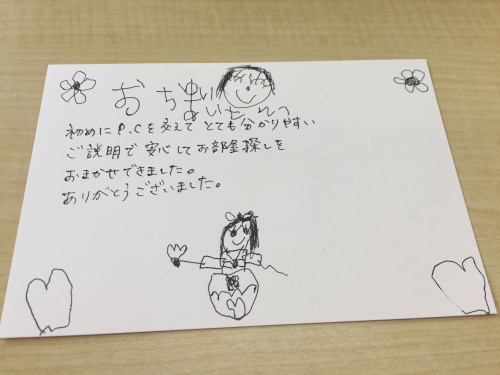 おちまい
初めにP.Cを交えて とても分かりやすい
ご説明で安心してお部屋探しを
おまかせできました。
ありがとうございました。